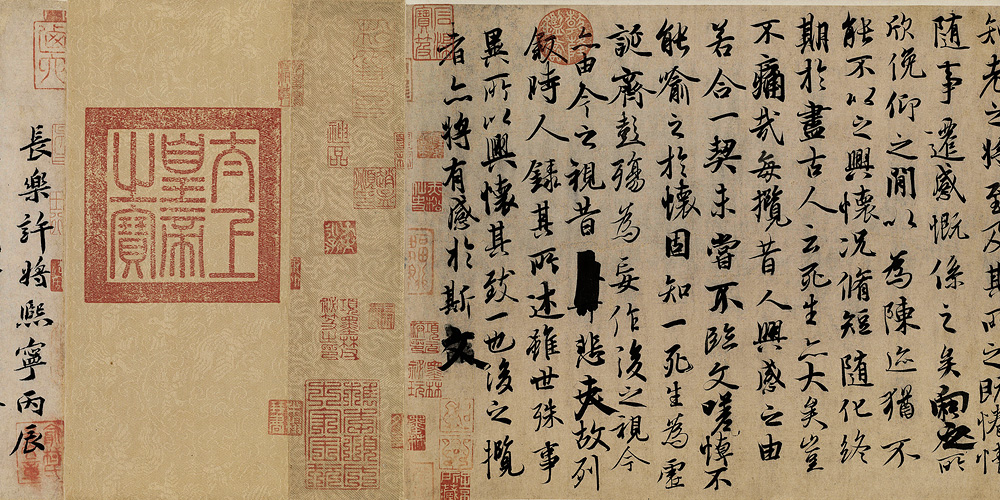 知老之將至及其所之既惓情
隨事遷感慨係之矣向之所
欣俛仰之閒以為陳迹猶不
能不以之興懷況脩短隨化終
期於盡古人云死生亦大矣豈
不痛哉每攬昔人興感之由
若合一契未嘗不臨文嗟悼不
能喻之於懷固知一死生為虛
誕齊彭殤為妄作後之視今
亦由今之視昔悲夫故列
叙時人錄其所述雖世殊事
異所以興懷其致一也後之攬
者亦將有感於斯文
太上
皇帝
之寶
長樂許將熙寧丙辰